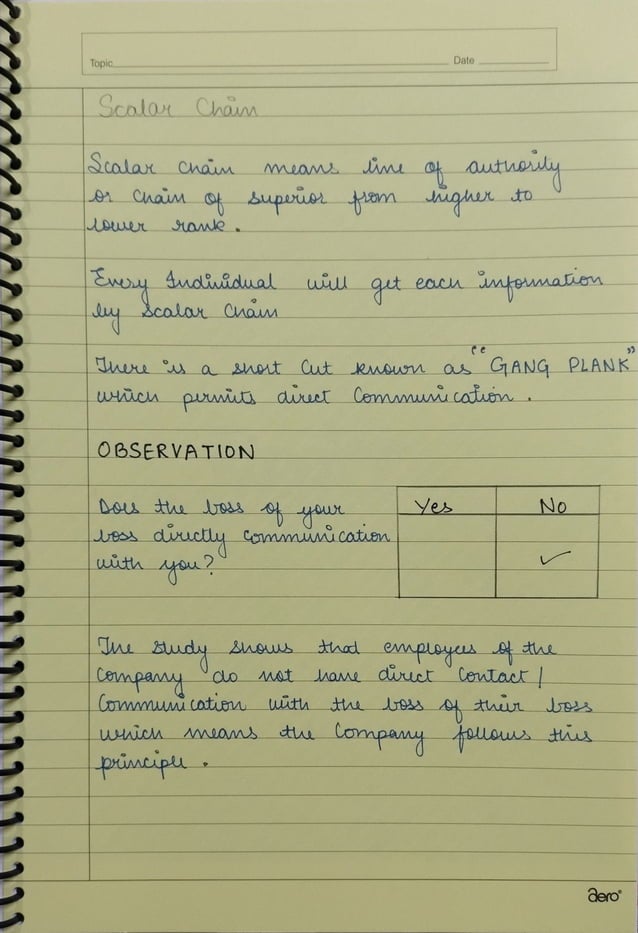 Topic
Date
Scalar Chain
Scalar chain means line of authority
or chain of superior from higher to
lower rank.
Every Individual will get each information
by scalar chain
There is a short cut known as "GANG PLANK"
which permits direct communication.
OBSERVATION
Does the boss of your
boss directly communication
with you?
Yes No
✓
The study shows that employees of the
company do not have direct contact /
communication with the boss of their boss
which means the company follows this
principle.
aero